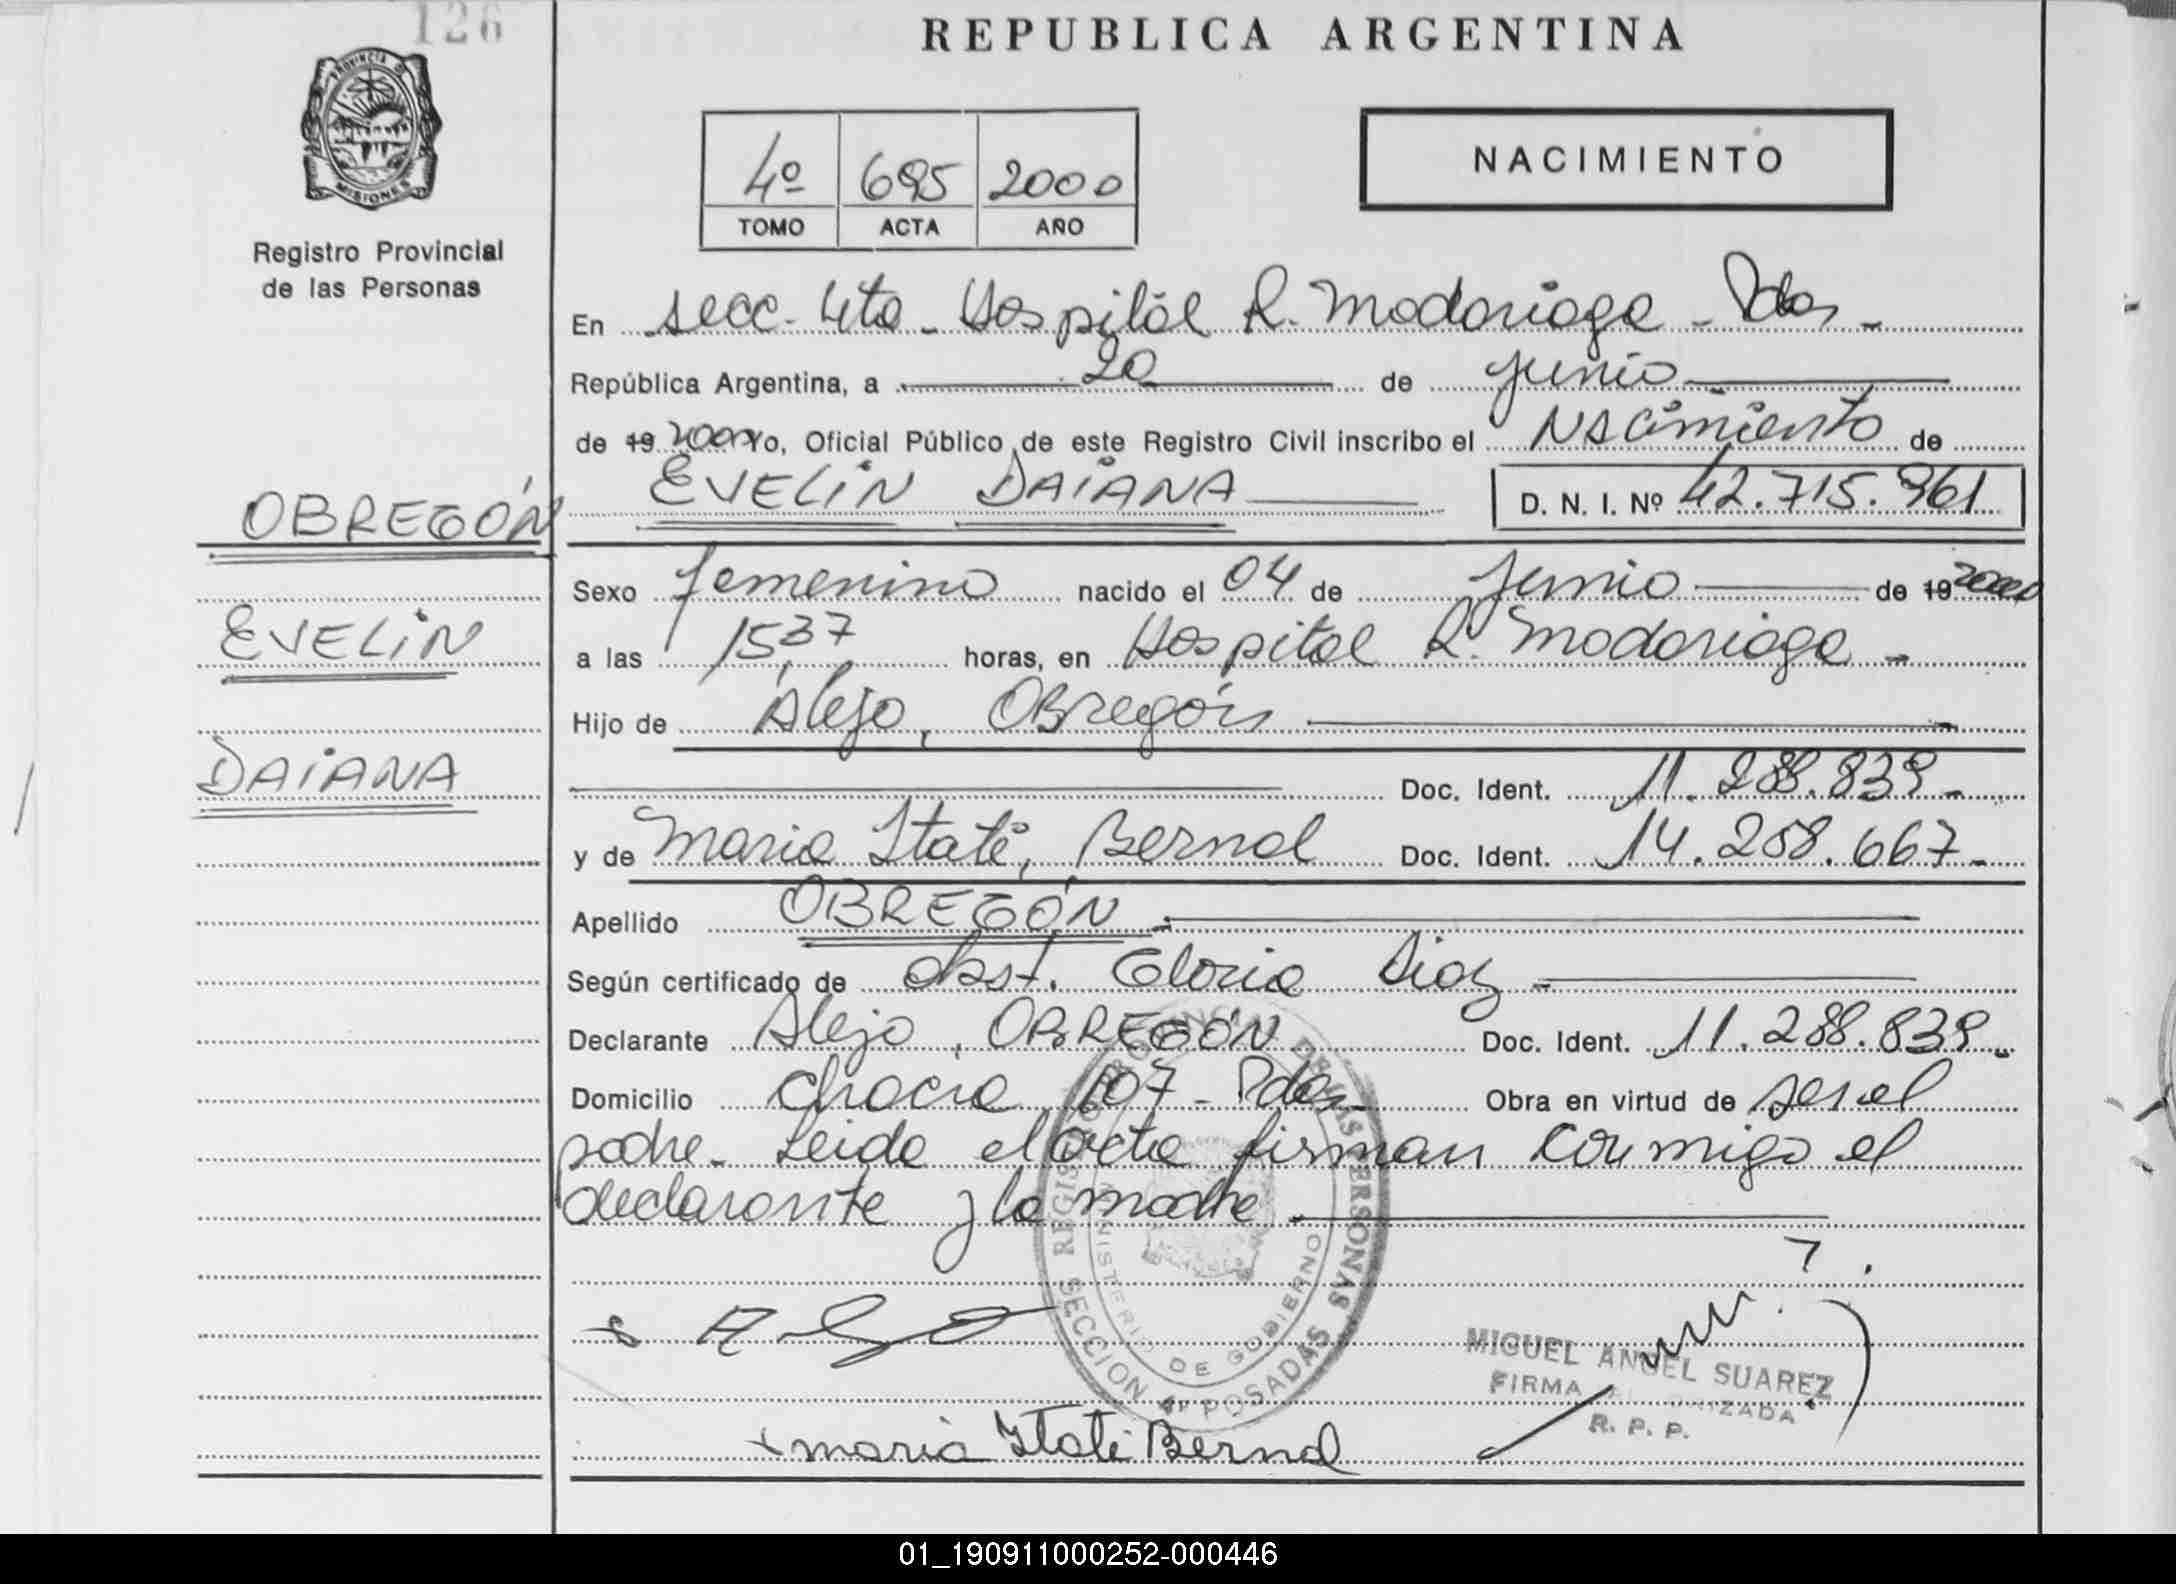 126
REPUBLICA ARGENTINA
PROVINCIA D
MISIONES
4º 695 2000
TOMO ACTA AÑO
NACIMIENTO
Registro Provincial
de las Personas
En secc. 4ta - Hospital R. Madariaga - Pdas -
República Argentina, a 20 de junio
de 19 2000 Yo, Oficial Público de este Registro Civil inscribo el NACimiento de
EVELiN DAiANA D. N. I. Nº 42.715.961
OBREGÓN
EVELiN
DAiANA
Sexo femenino nacido el 04 de junio de 19 2000
a las 15,37 horas, en Hospital R. Madariaga -
Hijo de Alejo, Obregón
Doc. Ident. 11.288.839 -
y de Maria Itati, Bernal Doc. Ident. 14.258.667 -
Apellido OBREGÓN -
Según certificado de obst. Gloria Diaz -
Declarante Alejo, OBREGÓN Doc. Ident. 11.288.839 -
Domicilio Chacra 107 - Pdas - Obra en virtud de ser el
padre - Leida el acta firman conmigo el
declarante y la madre -
REGISTRO PROVINCIAL DE LAS PERSONAS
MINISTERIO DE GOBIERNO
SECCION 4ª POSADAS
MIGUEL ANGEL SUAREZ
FIRMA AUTORIZADA
R. P. P.
x maria Itati Bernal
01_190911000252-000446